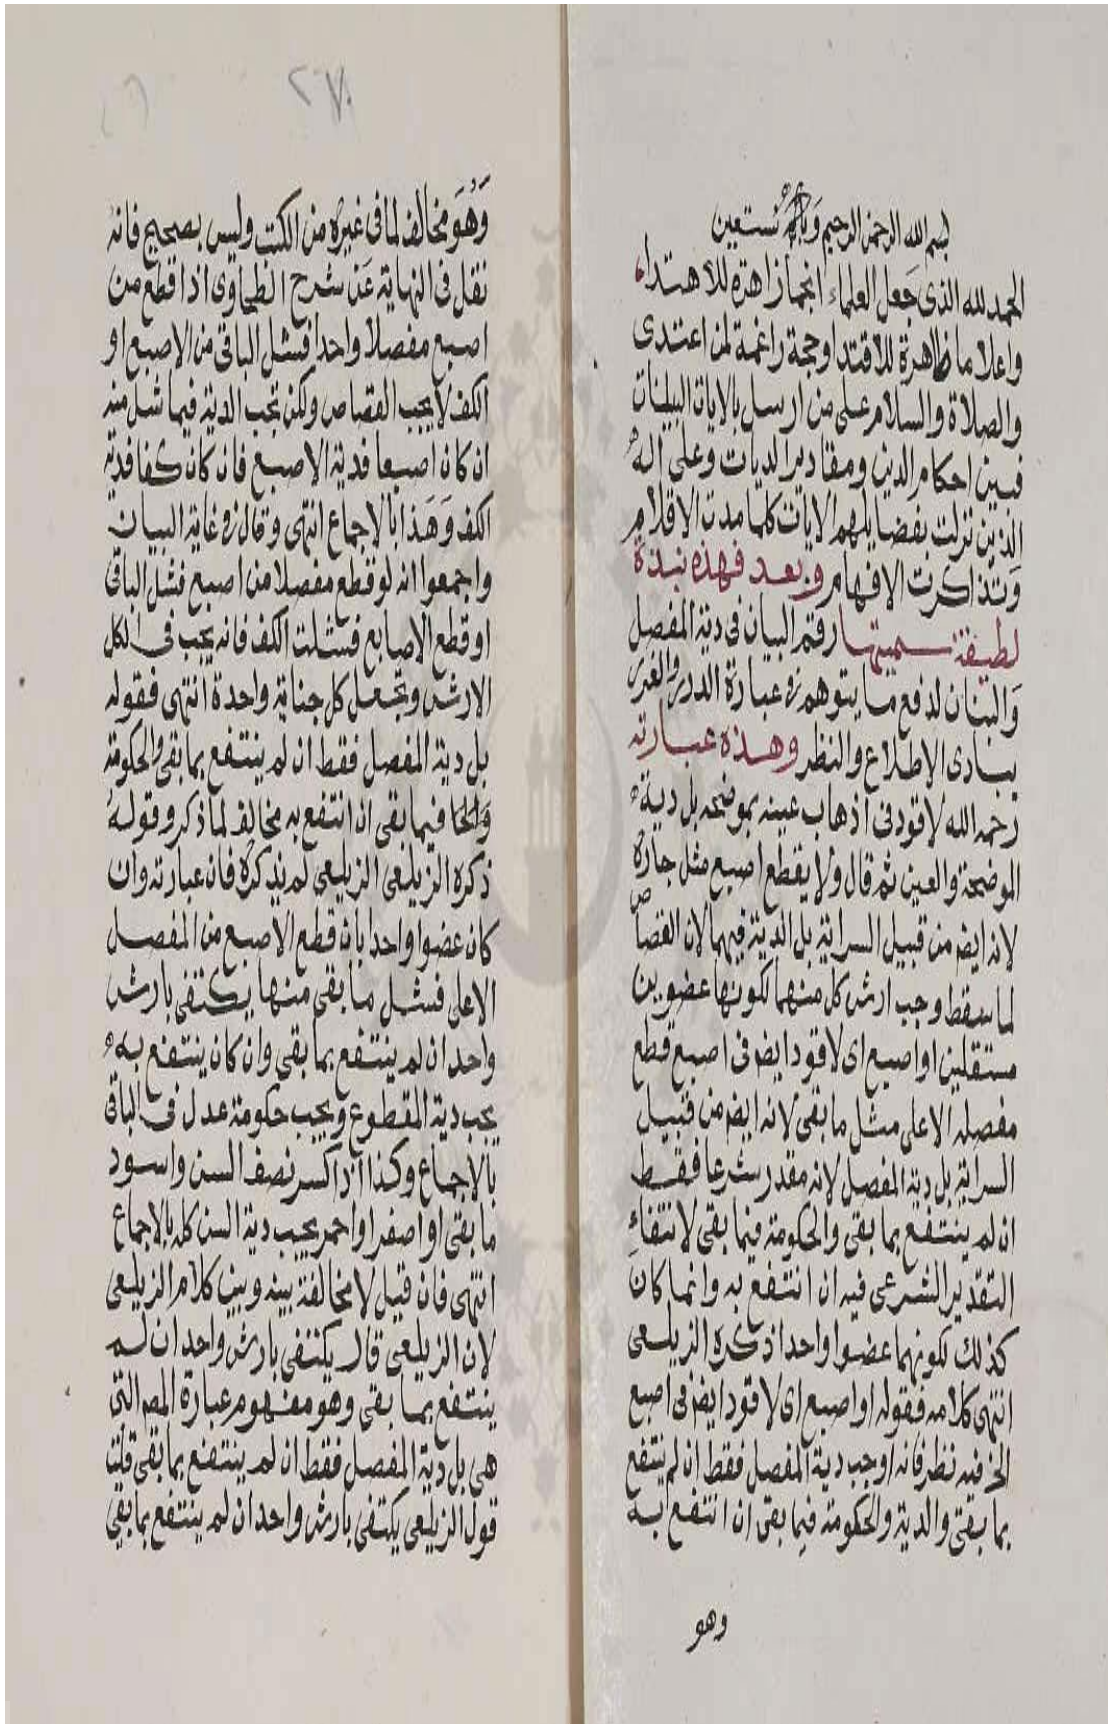 بسم الله الرحمن الرحيم وبه نستعين
الحمد لله الذى جعل العلماء انجما زاهرة للاهتداء
واعلاما ظاهرة للاقتدا وحجة راغمة لمن اعتدى
والصلاة والسلام على من ارسل بالايات البينات
فبين احكام الدين ومقادير الديات وعلى اله
الذين نزلت بفضايلهم الايات كلما مدت الاقلام
وتذاكرت الافهام وبعد فهذه نبذة
لطيفة سميتها رقم البيان فى دية المفصل
والبنان لدفع ما يتوهم من عبارة الدرر والغرر
ببادى الاطلاع والنظر وهذه عبارته
رحمه الله لا قود فى اذهاب عينه بموضحه بل دية
الموضحة والعين ثم قال ولا يقطع اصبع مثل جاره
لانه ايض من قبيل السراية بل الدية فيهما لان القصاص
لما سقط وجب ارش كل منهما لكونها عضوين
مستقلين او اصبع اى لا قود ايض فى اصبع قطع
مفصله الاعلى مثل ما بقى لانه ايض من قبيل
السراية بل دية المفصل لانه مقدر شرعا فقط
ان لم ينتفع بما بقى والحكومة فيما بقى لانتفاء
التقدير الشرعى فيه ان انتفع به وانما كان
كذلك لكونهما عضوا واحدا ذكره الزيلعى
انتهى كلامه فقوله او اصبع اى لا قود ايض فى اصبع
الخ فيه نظر فانه اوجب دية المفصل فقط ان لم ينتفع
بما بقى والدية والحكومة فيما بقى ان انتفع به
وهو
وهو مخالف لما فى غيره من الكتب وليس بصحيح فانه
نقل فى النهاية عن شرح الطحاوى اذا قطع من
اصبع مفصلا واحدا فشل الباقى من الاصبع او
الكف لا يجب القصاص ولكن تجب الدية فيما شل منه
ان كان اصبعا فدية الاصبع فان كان كفا فدية
الكف وهذا بالاجماع انتهى وقال فى غاية البيان
واجمعوا انه لو قطع مفصلا من اصبع فشل الباقى
او قطع الاصابع فشلت الكف فانه يجب فى الكل
الارش وتجعل كل جناية واحدة انتهى فقوله
بل دية المفصل فقط ان لم ينتفع بما بقى والحكومة
فيما بقى ان انتفع به مخالف لما ذكر وقوله
ذكره الزيلعى الزيلعى لم يذكره فان عبارته وان
كان عضوا واحدا بان قطع الاصبع من المفصل
الاعلى فشل ما بقى منها يكتفى بارش
واحد ان لم ينتفع بما بقى وان كان ينتفع به
يجب دية المقطوع ويجب حكومة عدل فى الباقى
بالاجماع وكذا اذا كسر نصف السن واسود
ما بقى او اصفر او احمر يجب دية السن كله بالاجماع
انتهى فان قيل لا مخالفة بينه وبين كلام الزيلعى
لان الزيلعى قال يكتفى بارش واحد ان لم
ينتفع بما بقى وهو مفهوم عبارة المص التى
هى بل دية المفصل فقط ان لم ينتفع بما بقى قلت
قول الزيلعى يكتفى بارش واحد ان لم ينتفع بما بقى